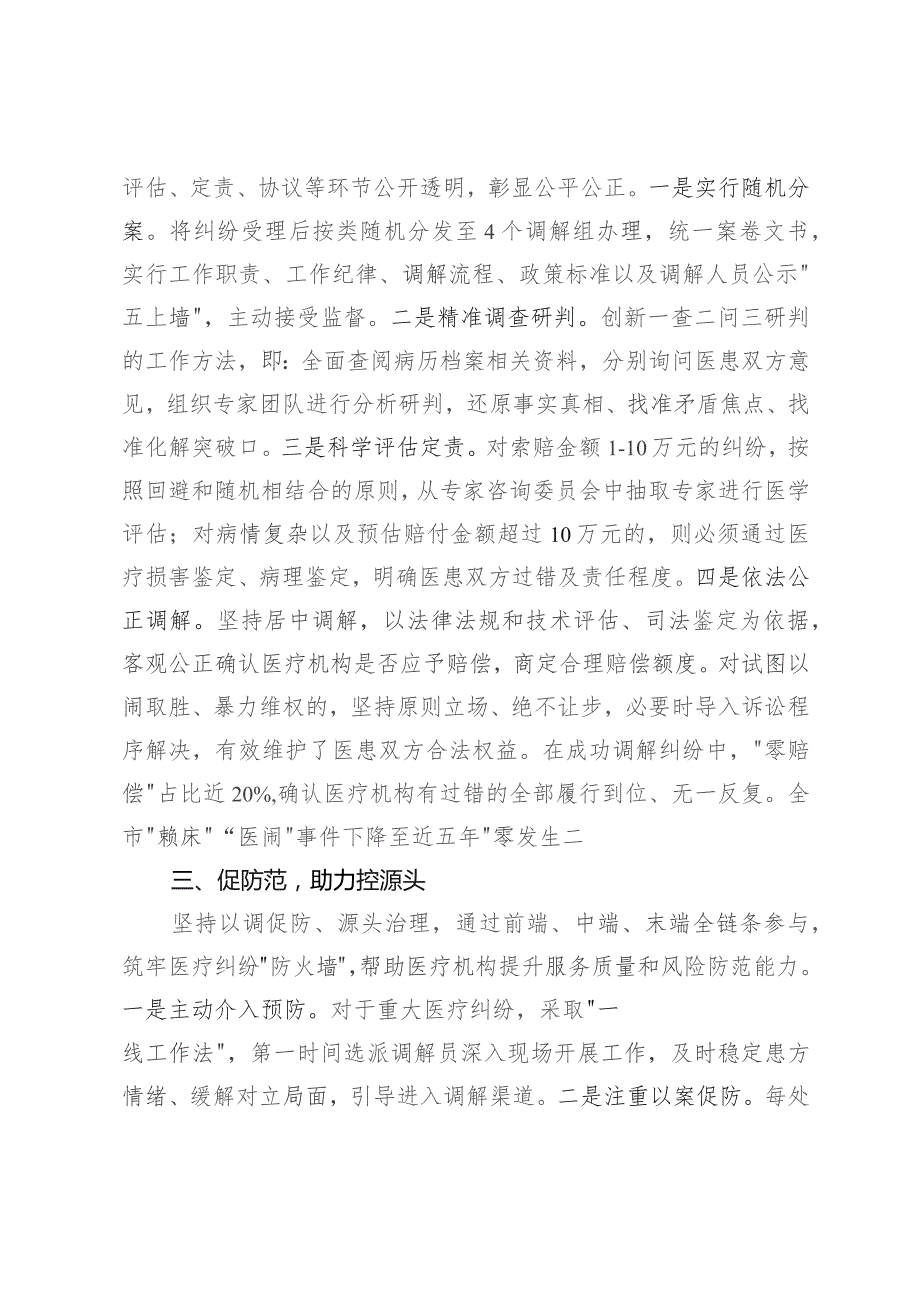 评估、定责、协议等环节公开透明，彰显公平公正。一是实行随机分
案。将纠纷受理后按类随机分发至 4 个调解组办理，统一案卷文书，
实行工作职责、工作纪律、调解流程、政策标准以及调解人员公示"
五上墙"，主动接受监督。二是精准调查研判。创新一查二问三研判
的工作方法，即：全面查阅病历档案相关资料，分别询问医患双方意
见，组织专家团队进行分析研判，还原事实真相、找准矛盾焦点、找
准化解突破口。三是科学评估定责。对索赔金额 1-10 万元的纠纷，按
照回避和随机相结合的原则，从专家咨询委员会中抽取专家进行医学
评估；对病情复杂以及预估赔付金额超过 10 万元的，则必须通过医
疗损害鉴定、病理鉴定，明确医患双方过错及责任程度。四是依法公
正调解。坚持居中调解，以法律法规和技术评估、司法鉴定为依据，
客观公正确认医疗机构是否应予赔偿，商定合理赔偿额度。对试图以
闹取胜、暴力维权的，坚持原则立场、绝不让步，必要时导入诉讼程
序解决，有效维护了医患双方合法权益。在成功调解纠纷中，"零赔
偿"占比近 20%,确认医疗机构有过错的全部履行到位、无一反复。全
市"赖床"“医闹"事件下降至近五年"零发生二
三、促防范，助力控源头
坚持以调促防、源头治理，通过前端、中端、末端全链条参与，
筑牢医疗纠纷"防火墙",帮助医疗机构提升服务质量和风险防范能力。
一是主动介入预防。对于重大医疗纠纷，采取"一
线工作法"，第一时间选派调解员深入现场开展工作，及时稳定患方
情绪、缓解对立局面，引导进入调解渠道。二是注重以案促防。每处